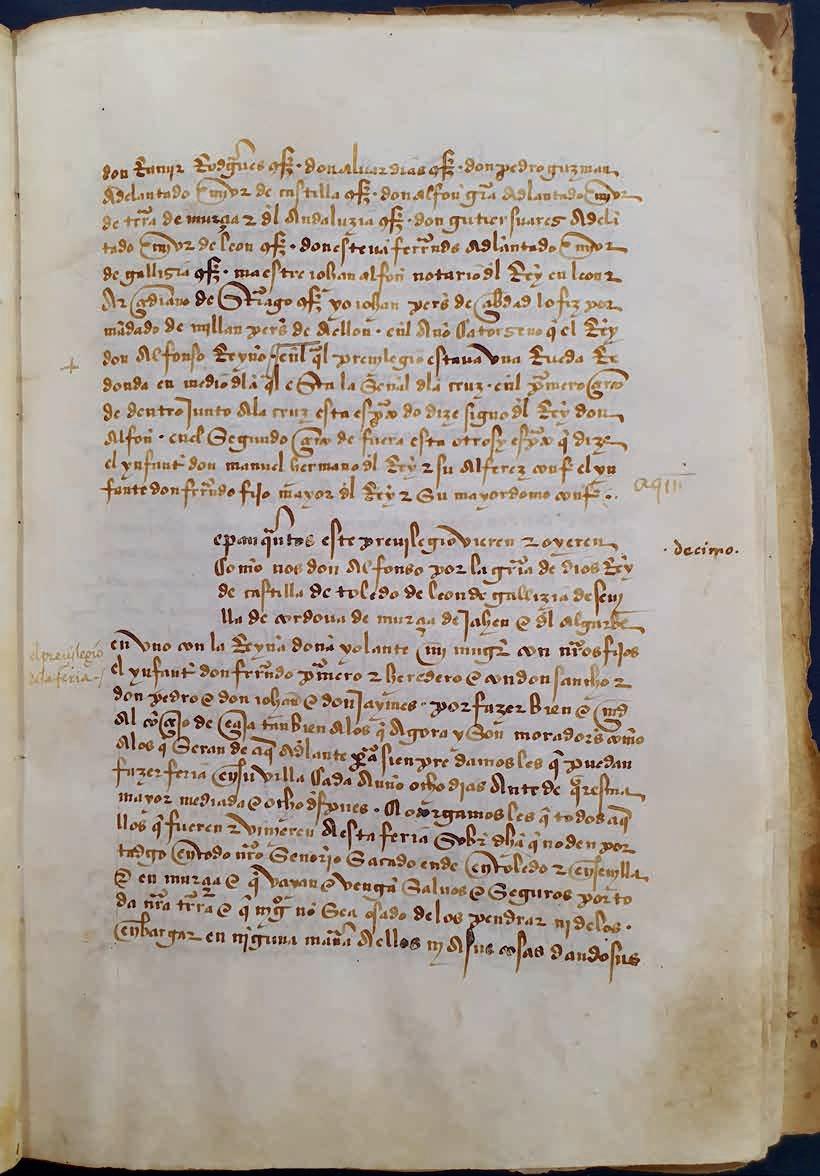 don Ramir Rodgues cfz. don aluar dias cfz. don pedro guzman
Adelantado mor de castilla cfz. don alfon gra Adlantado mor
de trra de murçia z dl Andaluzia cfz. don gutier suares Adela
tado mor de leon cfz. don esteua ferrnds adlantado mor
de gallizia cfz. maestre iohan alfon notario dl Rey en leon z
Arçidiano de Stiago cfz yo iohan pers de çibdad lo fiz por
mandado de millan pers de Aellon. enl Año Catorseno q el Rey
don Alfonso Reyno. enl ql preuilegio estaua vna Rueda Re
donda en medio dla ql esta la Señal dla cruz. enl pmero
de dentro Junto Ala cruz esta espto do dize signo dl Rey don
Alfon. en el Segundo de fuera esta otrosy espto q dize
el ynfante don manuel hermano dl Rey z su Alferez conf. el yn
fante don ferrndo fijo mayor dl Rey z Su mayordomo conf.
epan quntos este preuilegio vieren z oyeren
.decimo.
Como nos don Alfonso por la gria de dios Rey
de castilla de toledo de leon de gallizia de seui
lla de cordoua de murçia de Jahen e dl algarbe
en vno con la Reyna doña yolante mi muger con nros fijos
el preuilegio
dela feria
el ynfante don ferrndo pmero z heredero e con don sancho z
don pedro e don iohan e don Jaymes. por fazer bien e mrd
Al conçeio de eçija tanbien Alos q Agora y Son moradors como
Alos q Seran de aq Adlante pa sienpre damos les q puedan
fazer feria en su villa Cada Año ocho dias Ante de qresma
mayor mediada e ocho dspues. e otorgamos les q todos aque
llos q fueren z vinieren Aesta feria Sobr dha q no den por
tadgo en todo nro Señorio Sacado ende en toledo z en seuilla
e en murçia e q vayan e vengan Saluos e Seguros por to
da nra trra e q nigo no Sea osado delos pendrar ni delos
enbargar en niguna manera Aellos ni Asus cosas dando sus